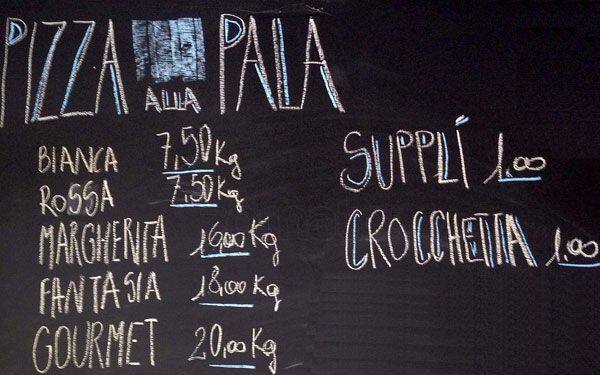 PIZZA ALLA PALA
BIANCA 7,50 Kg
ROSSA 7,50 Kg
MARGHERITA 16,00 Kg
FANTASIA 18,00 Kg
GOURMET 20,00 Kg
SUPPLÍ 1.00
CROCCHETTA 1.00